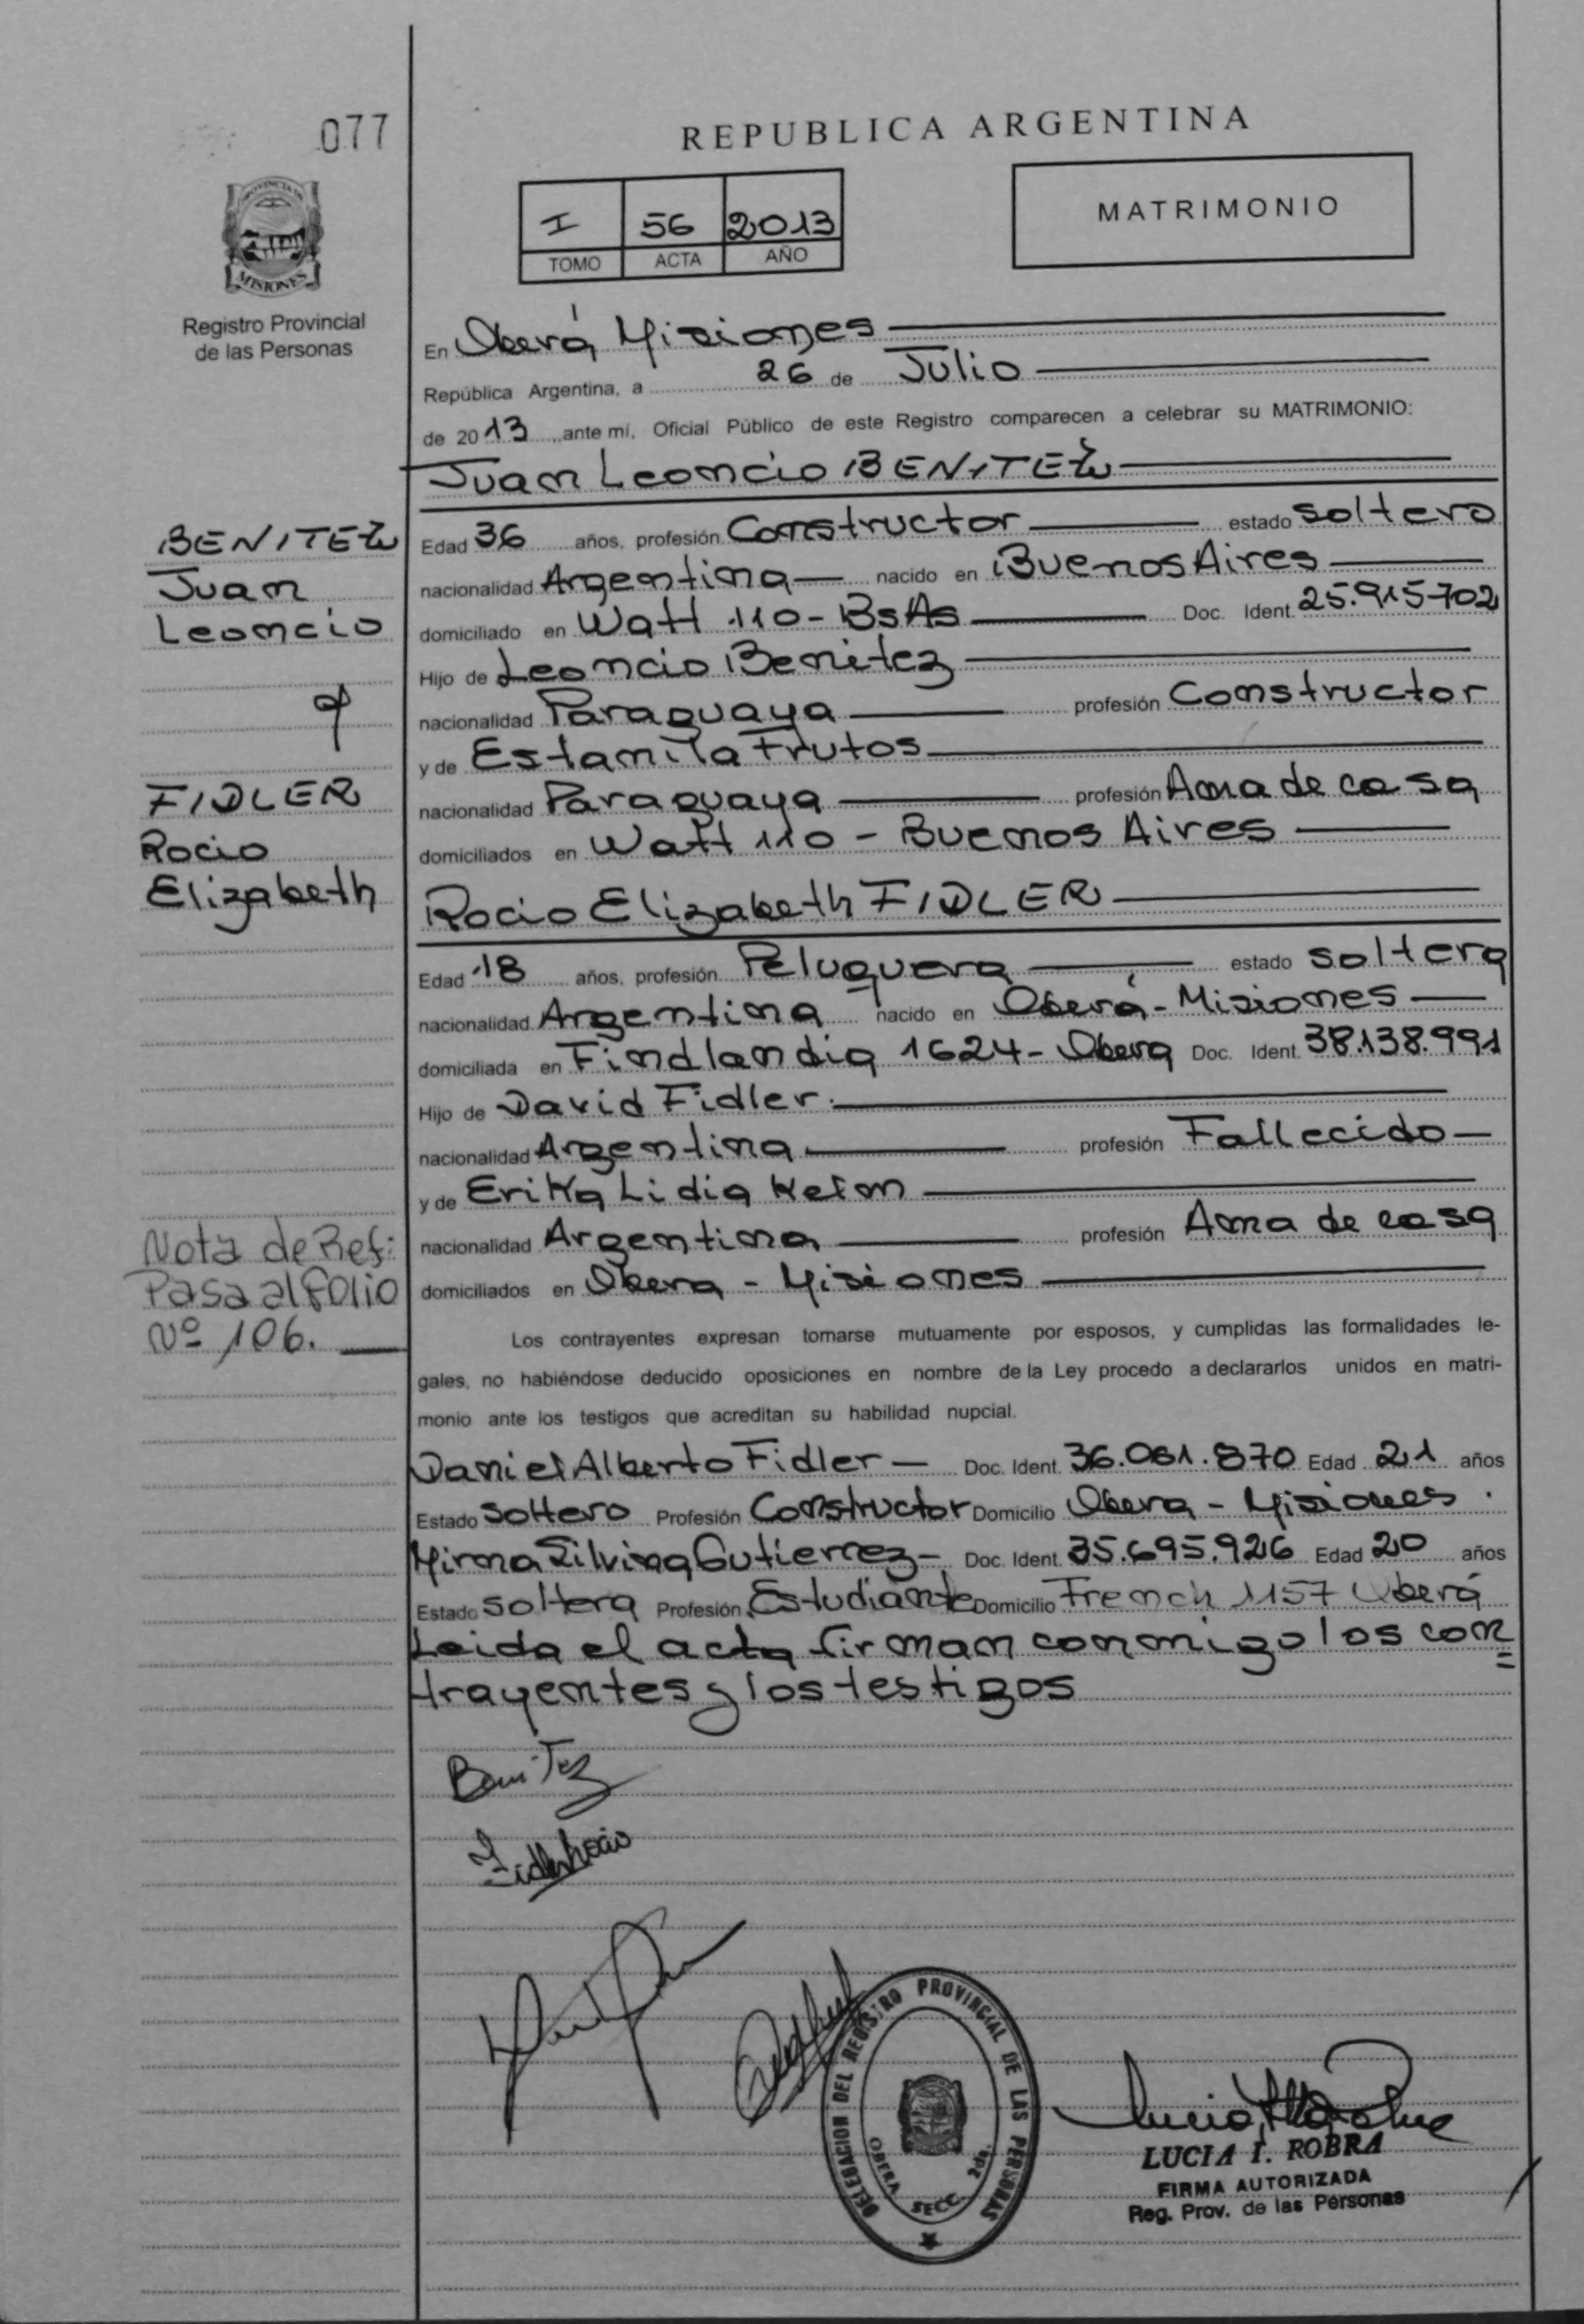 077
REPUBLICA ARGENTINA
PROVINCIA DE
MISIONES
Registro Provincial
de las Personas
I 56 2013
TOMO ACTA AÑO
MATRIMONIO
En Oberá Misiones
República Argentina, a 26 de Julio
de 2013 ,ante mí, Oficial Público de este Registro comparecen a celebrar su MATRIMONIO:
Juan Leoncio BENITEZ
BENITEZ
Juan
Leoncio
y
FIDLER
Rocio
Elizabeth
Edad 36 años, profesión Constructor estado soltero
nacionalidad Argentina nacido en Buenos Aires
domiciliado en Watt 110 - Bs As Doc. Ident. 25.915702
Hijo de Leoncio Benitez
nacionalidad Paraguaya profesión Constructor
y de Estamila Frutos
nacionalidad Paraguaya profesión Ama de casa
domiciliados en Watt 110 - Buenos Aires
Rocio Elizabeth FIDLER
Edad 18 años, profesión Peluquera estado soltera
nacionalidad Argentina nacido en Oberá - Misiones
domiciliada en Findlandia 1624 - Obera Doc. Ident. 38.138.991
Hijo de David Fidler.
nacionalidad Argentina profesión Fallecido
y de Erika Lidia
nacionalidad Argentina profesión Ama de casa
domiciliados en Obera - Misiones
Nota de Ref:
Pasa al folio
Nº 106.
Los contrayentes expresan tomarse mutuamente por esposos, y cumplidas las formalidades le-
gales, no habiéndose deducido oposiciones en nombre de la Ley procedo a declararlos unidos en matri-
monio ante los testigos que acreditan su habilidad nupcial.
Daniel Alberto Fidler Doc. Ident. 36.061.870 Edad 21 años
Estado soltero Profesión Constructor Domicilio Obera - Misiones.
Mirna Silvina Gutierrez Doc. Ident. 35.695.926 Edad 20 años
Estado soltera Profesión Estudiante Domicilio French 1157 Oberá
Leida el acta firman conmigo los con=
trayentes y los testigos
Benitez
Fidler Rocio
DELEGACION DEL REGISTRO PROVINCIAL DE LAS PERSONAS
OBERA SECC. 2da.
LUCIA I. ROBRA
FIRMA AUTORIZADA
Reg. Prov. de las Personas